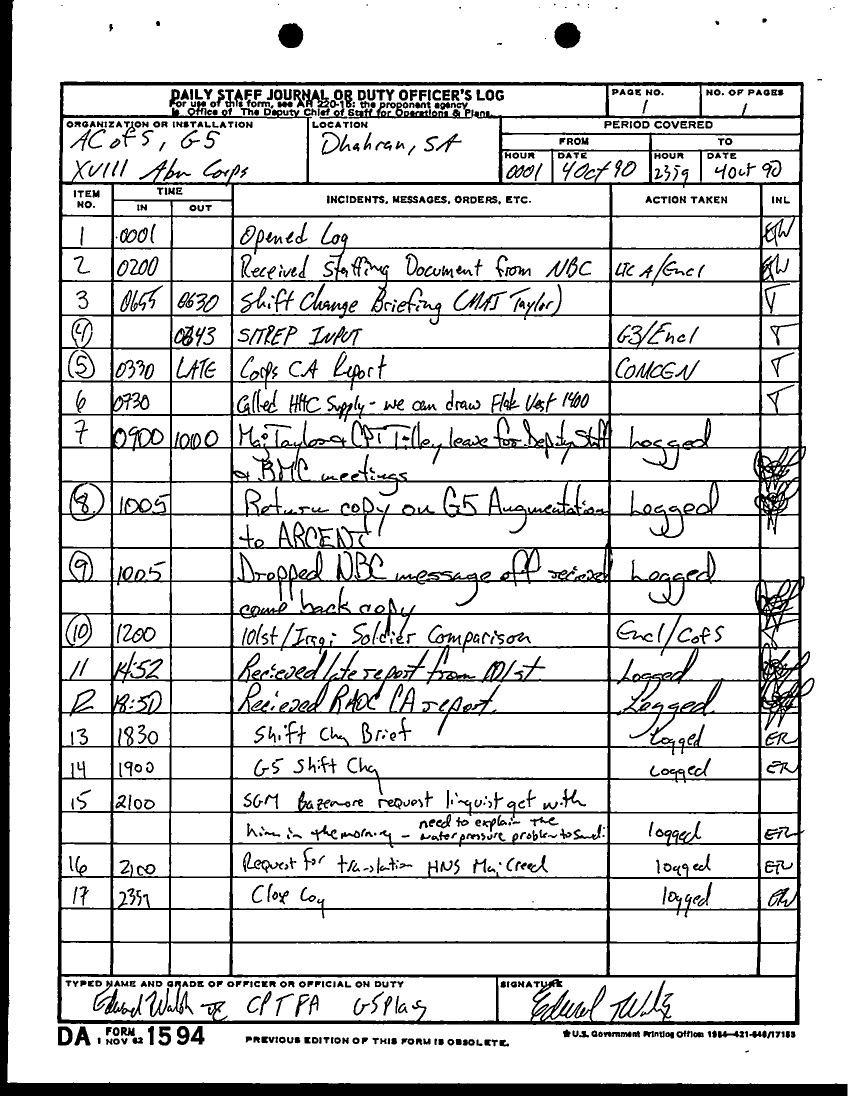 DAILY STAFF JOURNAL OR DUTY OFFICER'S LOG
For use of this form, see AR 220-15; the proponent agency
is Office of The Deputy Chief of Staff for Operations & Plans.
PAGE NO.
1
NO. OF PAGES
1
ORGANIZATION OR INSTALLATION
AC of S, G5
XVIII Abn Corps
LOCATION
Dhahran, SA
PERIOD COVERED
FROM TO
HOUR DATE HOUR DATE
0001 4 Oct 90 2359 4 Oct 90
ITEM NO. TIME IN OUT INCIDENTS, MESSAGES, ORDERS, ETC. ACTION TAKEN INL
1 0001 Opened Log EW
2 0200 Received Staffing Document from NBC LTC A/Encl EW
3 0655 0630 Shift Change Briefing (MAJ Taylor) T
4 0643 SITREP INPUT G3/Encl T
5 0330 LATE Corps CA Report COMCEN T
6 0730 Called HHC Supply - we can draw Flak Vest 1400 T
7 0900 1000 Maj Taylor & CPT Tilley leave for Deputy Staff Logged
& BMC meetings
8 1005 Return copy on G5 Augmentation Logged
to ARCENT
9 1005 Dropped NBC message off recieved Logged
come back copy
10 1200 101st/Iraqi Soldier Comparison Encl/CofS
11 14:52 Recieved late report from 101st. Logged
12 18:50 Recieved RAOC CA report. Logged
13 1830 Shift Chg Brief Logged ER
14 1900 G5 Shift Chg Logged ER
15 2100 SGM Bazemore request linguist get with
him in the morning - need to explain the
water pressure problem to Saudi logged
16 2100 Request for translation HNS Maj Creed logged
17 2359 Close Log logged EW
TYPED NAME AND GRADE OF OFFICER OR OFFICIAL ON DUTY
Edward Walsh Jr CPT FA G5 Plans
SIGNATURE
DA FORM 1594
1 NOV 62
PREVIOUS EDITION OF THIS FORM IS OBSOLETE.
★U.S. Government Printing Office: 1984-421-646/17183